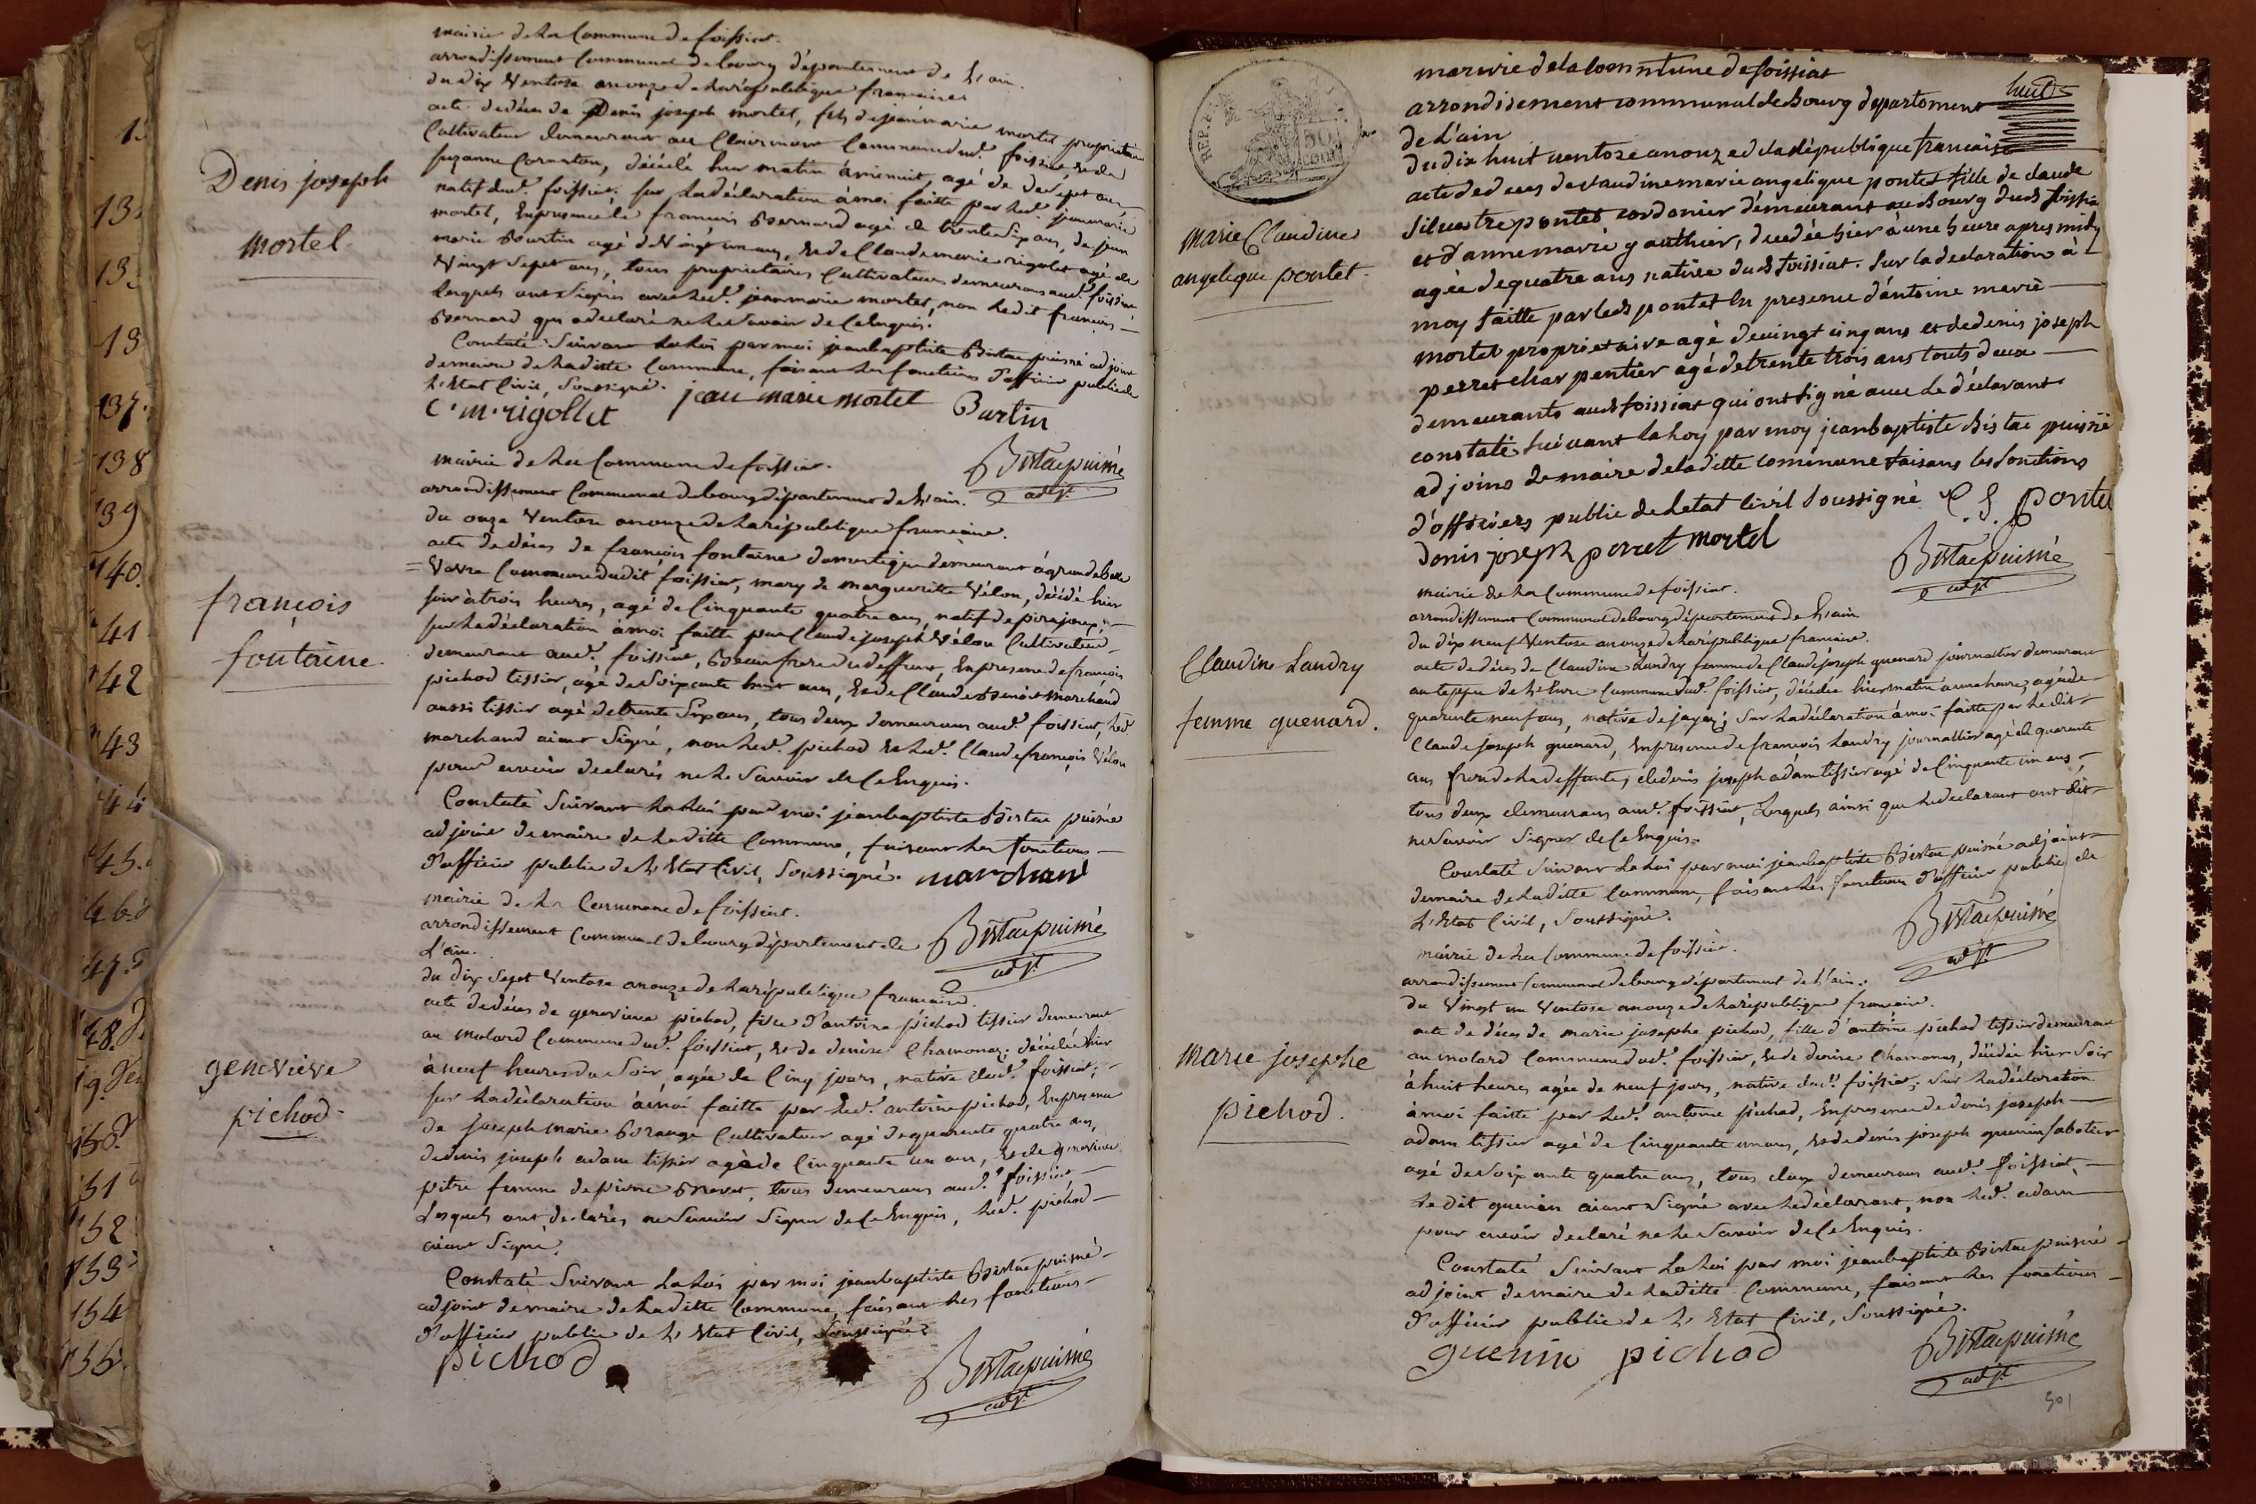 mairie de la Commune de foissiat.
arrondissement Communal de bourg département de L'ain.
du dix Ventose an onze de la république francaise
acte de décès de Denis joseph mortel, fils de jean marie mortel propriétaire
Cultivateur demeurant au Clairmont Commune dud. foissiat, et de
suzanne Cornaton, décédé hier matin à minuit, agé de dix sept ans,
natif dud. foissiat; sur la déclaration à moi faitte par led. jean marie
mortel, En présence de francois Bernard agé de trente six ans, de jean
marie Burtin agé de Vingt un ans, et de Claude marie rigolet agé de
Vingt sept ans, tous propriétaires Cultivateurs demeurans aud. foissiat
lesquels ont signés avec led. jean marie mortel, non ledit francois
Bernard qui a déclaré ne le savoir de Ce Enquis.
Constaté Suivant la Loi par moi jean baptiste Bistac puisné adjoint
de maire de laditte Commune, faisant les fonctions d'officier public de
L'Etat Civil, Soussigné.
C. m. rigollet jean marie mortel Burtin
Bistac puisné
adjt.
Denis joseph
mortel
mairie de la Commune de foissiat.
arrondissement Communal de bourg département de L'ain.
du onze Ventose an onze de la république francaise.
acte de décès de francois fontaine domestique demeurant à grande belle
= Vavre Commune dudit foissiat, mary de marguerite Vélon, décédé hier
soir à trois heures, agé de Cinquante quatre ans, natif de pirajoux;
sur la déclaration à moi faitte par Claude joseph Vélon Cultivateur
demeurant aud. foissiat, Beau frere du deffunt, En présence de francois
pichod tissier, agé de Soixante huit ans, et de Claude Benoit marchand
aussi tissier agé de trente six ans, tous deux demeurans aud. foissiat, led.
marchand aiant Signé, non led. pichod et led. Claude françois Vélon
pour avoir déclarés ne le Savoir de Ce Enquis.
Constaté Suivant la Loi par moi jean baptiste Bistac puisné
adjoint de maire de laditte Commune, faisant les fonctions
d'officier public de L'Etat Civil, Soussigné. marchand
Bistac puisné
adjt.
françois
fontaine.
mairie de la Commune de foissiat.
arrondissement Communal de bourg département de
L'ain.
du dix Sept Ventose an onze de la république francaise.
acte de décès de genevieve pichod, fille d'antoine pichod tissier demeurant
au molard Commune dud. foissiat, et de denise Chamonaz; décédée hier
à neuf heures du Soir, agée de Cinq jours, native dud. foissiat;
sur la déclaration à moi faitte par led. antoine pichod, En présence
de joseph marie Borange Cultivateur agé de quarante quatre ans,
de denis joseph adam tissier agé de Cinquante un ans, et de genevieve
pitre femme de pierre Brevet, tous demeurans aud. foissiat
Lesquels ont déclarés ne Savoir Signer de Ce Enquis, led. pichod
aiant Signé.
Constaté Suivant la Loi par moi jean baptiste Bistac puisné
adjoint de maire de laditte Commune, faisant les fonctions
d'officier public de L'Etat Civil, Soussigné.
pichod
Bistac puisné
adjt.
genevieve
pichod.
1.
13.
13.
13
137.
138
139
140.
41
42
43
44
45.
46.
47.
48.
49.
150.
151
152
153
154
155.
huit
mairie de la Commune de foissiat
arrondisement communal de Bourg departement
de L'ain
du dix huit ventose an onze de la république francaise
acte de deces de claudine marie angelique pontet fille de claude
siluestre pontet cordonier demeurant au Bourg dud foissia
et d'anne marie gauthier, decedée hier à une heure apres midy
agée de quatre ans native dud foissiat. sur la declaration à
moy faitte par led pontet en presence d'antoine marie
mortel proprietaire agé de vingt cinq ans et de denis joseph
perret charpentier agé de trente trois ans touts deux
demeurants aud foissiat qui ont signé avec le déclarant
constaté suivant la loy par moy jean baptiste Bistac puisné
adjoins de maire de laditte commune faisans les fonctions
d'officiers public de letat civil soussigné C. S. pontet
denis joseph perret mortel
Bistac puisné
adjt.
REP. F.
50
cent
marie Claudine
angelique pontet.
mairie de la Commune de foissiat.
arrondissement Communal de bourg département de L'ain
du dix neuf Ventose an onze de la république francaise.
acte de décès de Claudine Landry femme de Claude joseph guenard journallier demeurant
au teppe de Commune dud. foissiat, décédée hier matin à une heure, agée de
quarante neuf ans, native de jayat; sur la déclaration à moi faitte par ledit
Claude joseph guenard, En présence de francois Landry journallier agé de quarante
ans frere de la deffunte, de denis joseph adam tissier agé de Cinquante un ans,
tous deux demeurans aud. foissiat, Lesquels ainsi que le déclarant ont dit
ne Savoir Signer de Ce Enquis.
Constaté Suivant la Loi par moi jean baptiste Bistac puisné adjoint
de maire de laditte Commune, faisant les fonctions d'officier public de
L'Etat Civil, Soussigné.
Bistac puisné
adjt.
Claudine Landry
femme guenard.
mairie de la Commune de foissiat.
arrondissement Communal de bourg département de L'ain.
du Vingt un Ventose an onze de la république francaise.
acte de décès de marie josephe pichod, fille d'antoine pichod tissier demeurant
au molard Commune dud. foissiat, et de denise Chamonaz, décédée hier Soir
à huit heures agée de neuf jours, native dud. foissiat; sur la déclaration
à moi faitte par led. antoine pichod, En présence de denis joseph
adam tissier agé de Cinquante un ans, et de denis joseph guenin sabotier
agé de Soixante quatre ans, tous deux demeurans aud. foissiat,
ledit guenin aiant Signé avec le déclarant, non led. adam
pour avoir déclaré ne le Savoir de Ce Enquis.
Constaté Suivant la Loi par moi jean baptiste Bistac puisné
adjoint de maire de laditte Commune, faisant les fonctions
d'officier public de L'Etat Civil, Soussigné.
guenin pichod
Bistac puisné
adjt.
marie josephe
pichod.
501